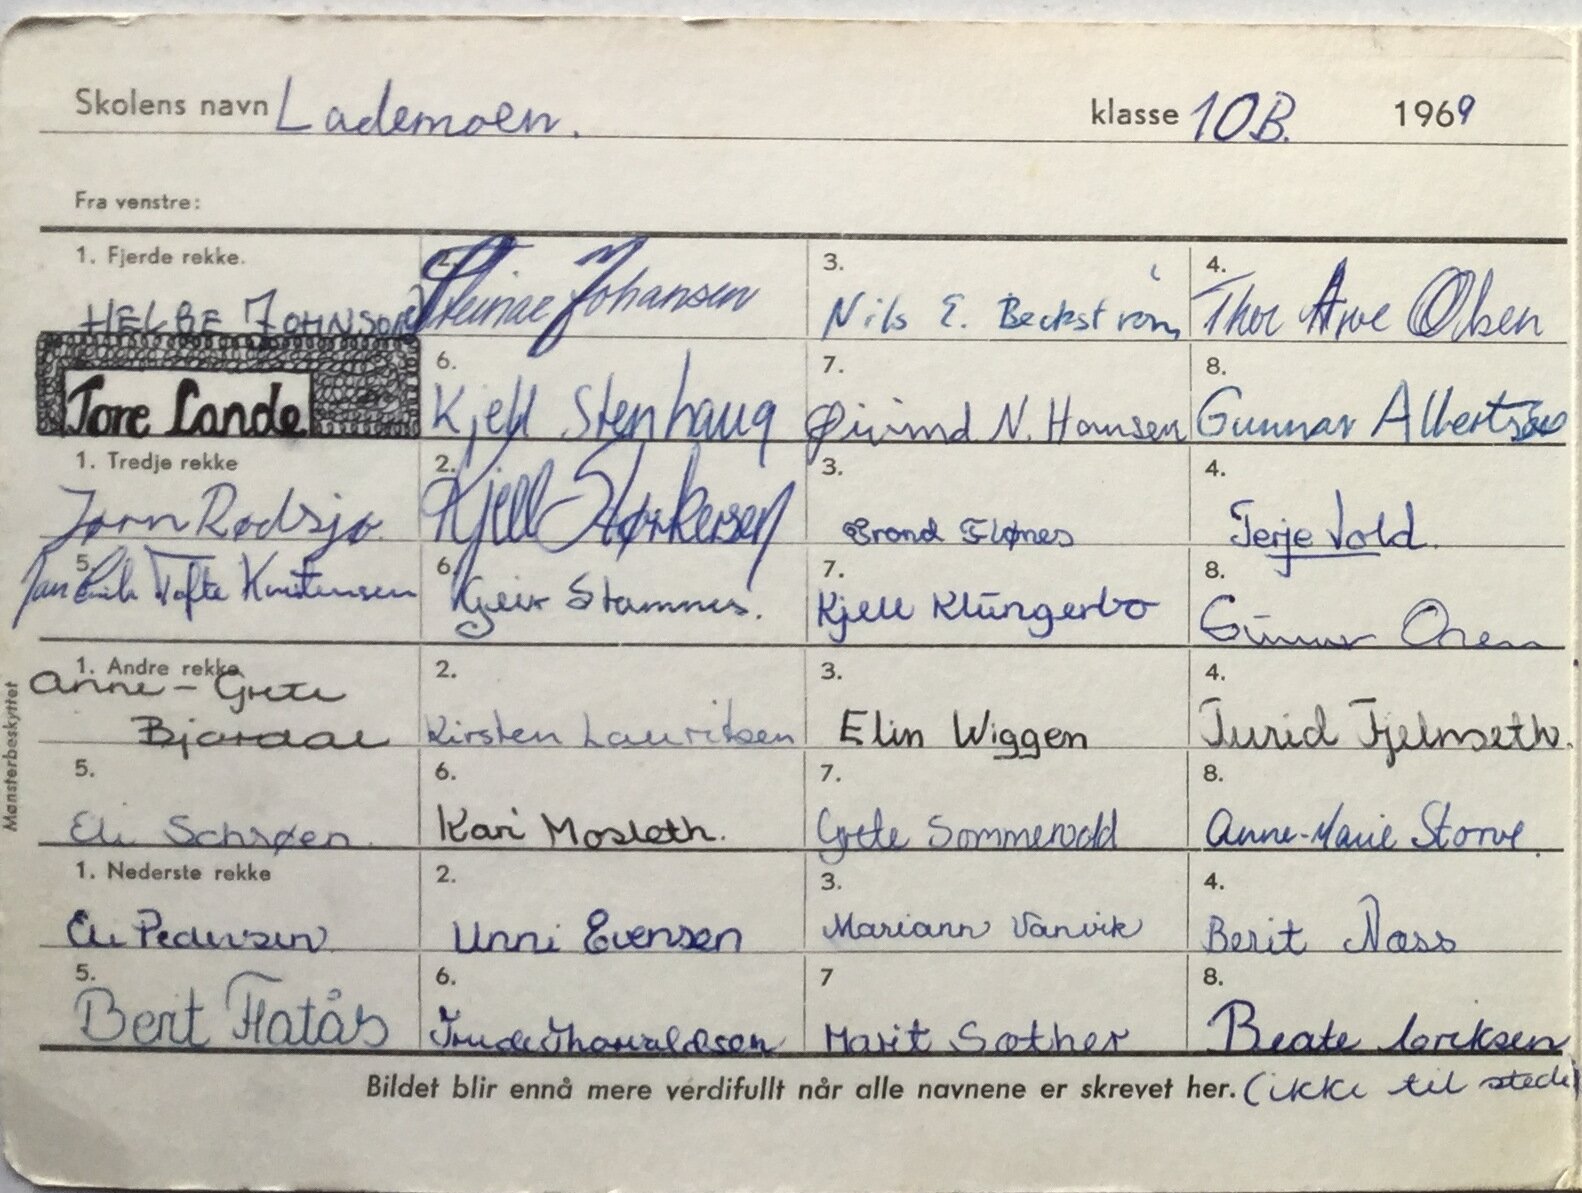 Skolens navn Lademoen. klasse 10B. 1969
Fra venstre:
1. Fjerde rekke. 2. 3. 4.
HELGE JOHNSON Steinar Johansen Nils E. Beckstrøm Thor Arve Olsen
6. 7. 8.
Tore Lande Kjell Stenhaug Øivind N. Hansen Gunnar Albertsen
1. Tredje rekke 2. 3. 4.
Jørn Rødsjø. Kjell Størkersen Trond Flønes Terje Vold.
5. 6. 7. 8.
Jan Erik Tofte Kristensen Geir Stamnes. Kjell Klungerbo Gunnar
1. Andre rekke 2. 3. 4.
Anne-Grete
Bjørdal Kirsten Lauritsen Elin Wiggen Turid Fjelnseth.
5. 6. 7. 8.
Eli Schrøen. Kari Mosleth. Grete Sommervold Anne-Marie Storve.
1. Nederste rekke 2. 3. 4.
Eli Pedersen Unni Evensen Mariann Vanvik Berit Næss
5. 6. 7 8.
Berit Flatås Trude Thorvaldsen Marit Sæther Beate Eriksen
Bildet blir ennå mere verdifullt når alle navnene er skrevet her. (ikke til stede)
Mønsterbeskyttet